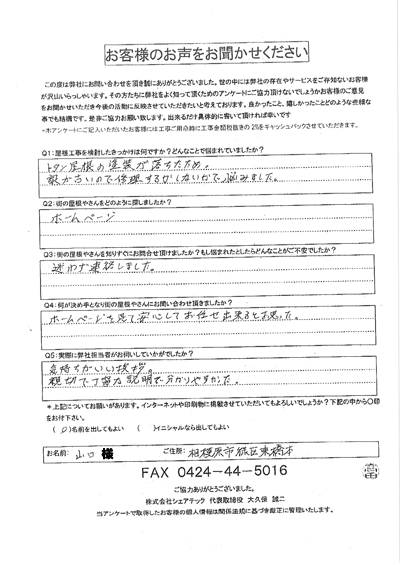 お客様のお声をお聞かせください
この度は弊社にお問い合わせを頂き誠にありがとうございました。世の中には弊社の存在やサービスをご存知ないお客様
が沢山いらっしゃいます。その方たちに弊社をよく知って頂くためのアンケートにご協力頂けないでしょうかお客様のご意見
をお聞かせいただき今後の活動に反映させていただきたいと考えております。良かったこと、嬉しかったことどのような些細な
事でも結構です。是非ご協力お願い致します。出来るだけ具体的に書いて頂ければ幸いです
-本アンケートにご記入いただいたお客様には工事ご用命時に工事金額税抜きの2%をキャッシュバックさせていただきます。
Q1:屋根工事を検討したきっかけは何ですか?どんなことで悩まれていましたか?
トタン屋根の塗装が落ちたため。
家が古いので修理するかしないかで、悩みました。
Q2:街の屋根やさんをどのように探しましたか?
ホームページ
Q3:街の屋根やさんを知りすぐにお問合せ頂けましたか?もし悩まれたとしたらどんなことがご不安でしたか?
迷わず連絡しました。
Q4:何が決め手となり街の屋根やさんにお問い合わせ頂きましたか?
ホームページを見て安心してお任せ出来ると思った。
Q5:実際に弊社担当者がお伺いしていかがでしたか?
気持ちがいい挨拶。
親切で丁寧な説明で分かりやすかった。
*上記についてお願いがあります。インターネットや印刷物に掲載させていただいてもよろしいでしょうか?下記の中から〇印
をお付け下さい。
(〇)名前を出してもよい ( )イニシャルなら出してもよい
お名前: 山口 様 ご住所: 相模原市緑区東橋本
FAX 0424-44-5016
ご協力ありがとうございました。
株式会社シェアテック 代表取締役 大久保 誠二
当アンケートで取得したお客様の個人情報は関係法規に基づき厳正に管理いたします。